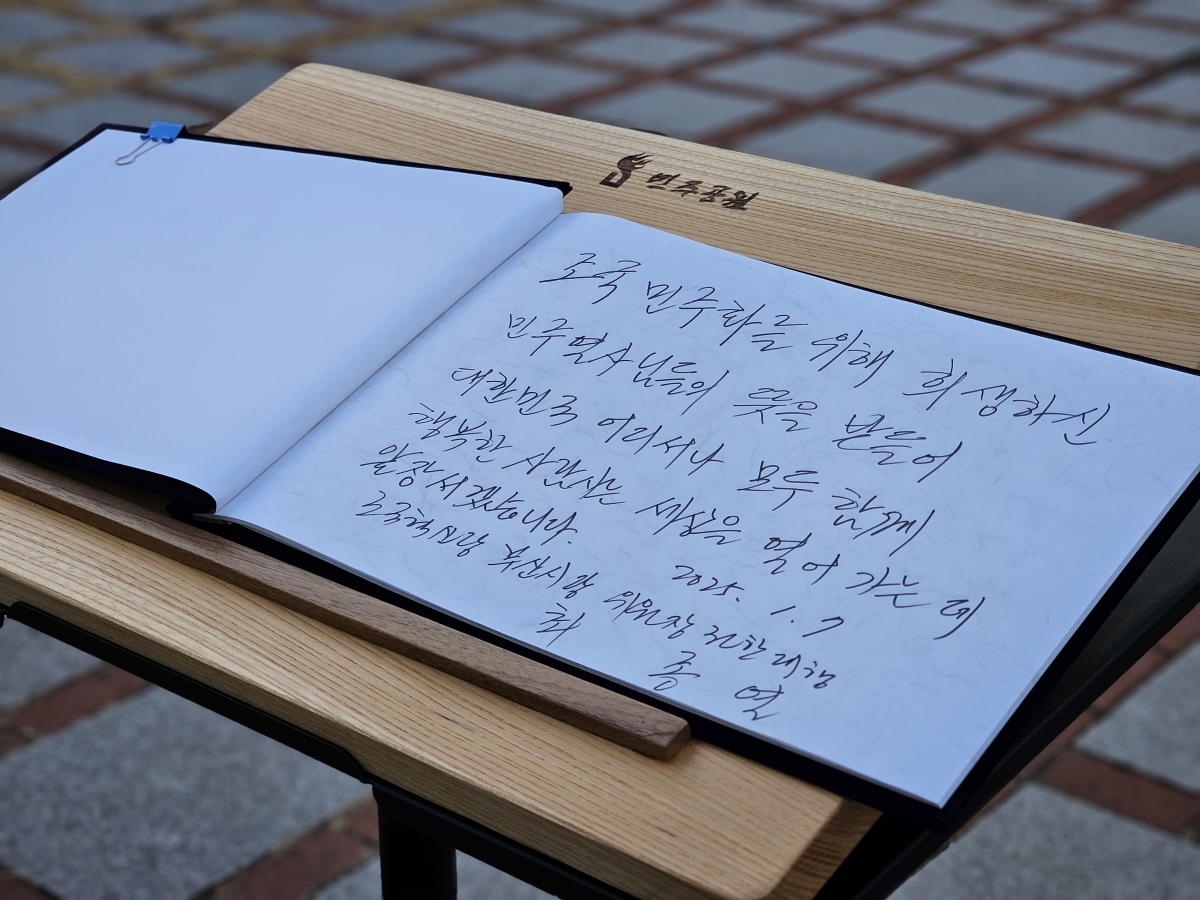 민주공원
조국 민주화를 위해 희생하신
민주열사님들의 뜻을 받들어
대한민국 어디서나 모두 함께
행복한 사람사는 세상을 열어 가는데
앞장서겠습니다.
2025. 1. 7
조국혁신당 부산시당 위원장 권한대행
최 종 열